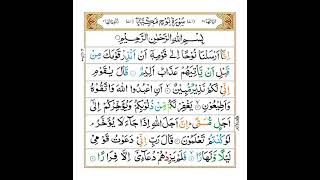 سُوۡرَةُ نُوۡحٍ مَكِّيَّةٌ
بِسۡمِ اللّٰهِ الرَّحۡمٰنِ الرَّحِيۡمِ
اِنَّاۤ اَرۡسَلۡنَا نُوۡحًا اِلٰى قَوۡمِهٖۤ اَنۡ اَنۡذِرۡ قَوۡمَكَ مِنۡ
قَبۡلِ اَنۡ يَّاۡتِيَهُمۡ عَذَابٌ اَلِيۡمٌ ۝ قَالَ يٰقَوۡمِ
اِنِّىۡ لَكُمۡ نَذِيۡرٌ مُّبِيۡنٌ ۝ اَنِ اعۡبُدُوا اللّٰهَ وَاتَّقُوۡهُ
وَاَطِيۡعُوۡنِ ۝ يَغۡفِرۡ لَكُمۡ مِّنۡ ذُنُوۡبِكُمۡ وَيُؤَخِّرۡكُمۡ اِلٰٓى
اَجَلٍ مُّسَمًّى ؕ اِنَّ اَجَلَ اللّٰهِ اِذَا جَآءَ لَا يُؤَخَّرُ
لَوۡ كُنۡتُمۡ تَعۡلَمُوۡنَ ۝ قَالَ رَبِّ اِنِّىۡ دَعَوۡتُ قَوۡمِىۡ
لَيۡلًا وَّنَهَارًا ۝ فَلَمۡ يَزِدۡهُمۡ دُعَآءِىۡۤ اِلَّا فِرَارًا ۝